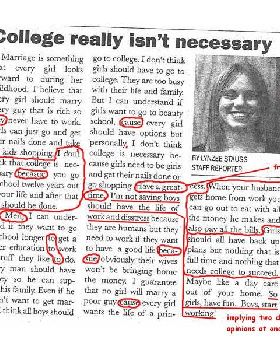 College really isn't necessary
Marriage is something
at every girl looks
rward to during her
ildhood. I believe that
ery girl should marry
ery guy that is rich so
never have to work.
can just go and get
nails done and take
kids shopping. I don't
nk that college is nec-
sary because you go
chool twelve years out
your life and after
should be done.
Men, I can under-
if they want to go
school longer to get a
ter education to work
tuff they like to do.
ry man should have
so he can sup-
his family. Even if he
n't want to get mar-
I think all boys should
go to college. I don't think
girls should have to go to
college. They are too busy
with their life and family.
But I can understand if
girls want to go to beauty
school, cause every girl
should have options but
personally, I don't think
college is necessary be-
cause girls need to be girls
and get their nails done or
go shopping, have a great
time. I'm not saying boys
should have the life of
work and distress because
they are humans but they
need to work if they want
to have a good life becau-
se obviously their wives
won't be bringing home
the money. I guarantee
that no girl will marry a
poor guy cause every girl
wants the life of a prin-
BY LYNZEE STAUSS
STAFF REPORTER
cess. When your husband
gets home from work you
can go out to eat with all
the money he makes and
also pay all the bills. Girls
should all have back up
plans but nothing that is
full time and nothing that
needs college to succeed.
Maybe like a day care
out of your home. So
girls, have fun. Boys, start
working.
implying two d
opinions at on